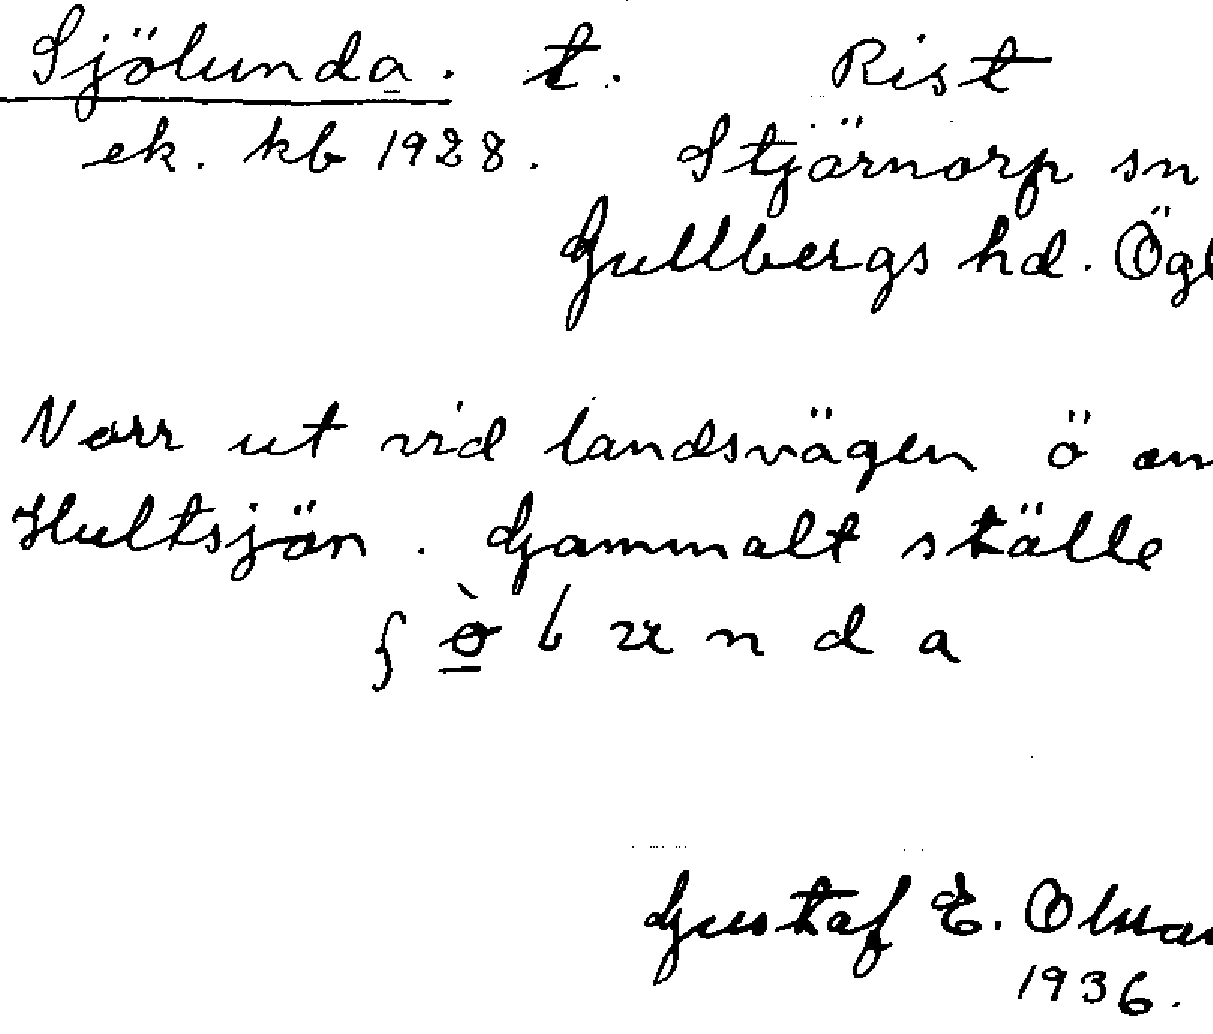 Sjölunda. t. Rist
ek. kb 1928. Stjärnorp sn
Gullbergs hd. Ögl
Norr ut vid landsvägen ö om
Hultsjön. Gammalt ställe
Gustaf E. Olsson
1936.